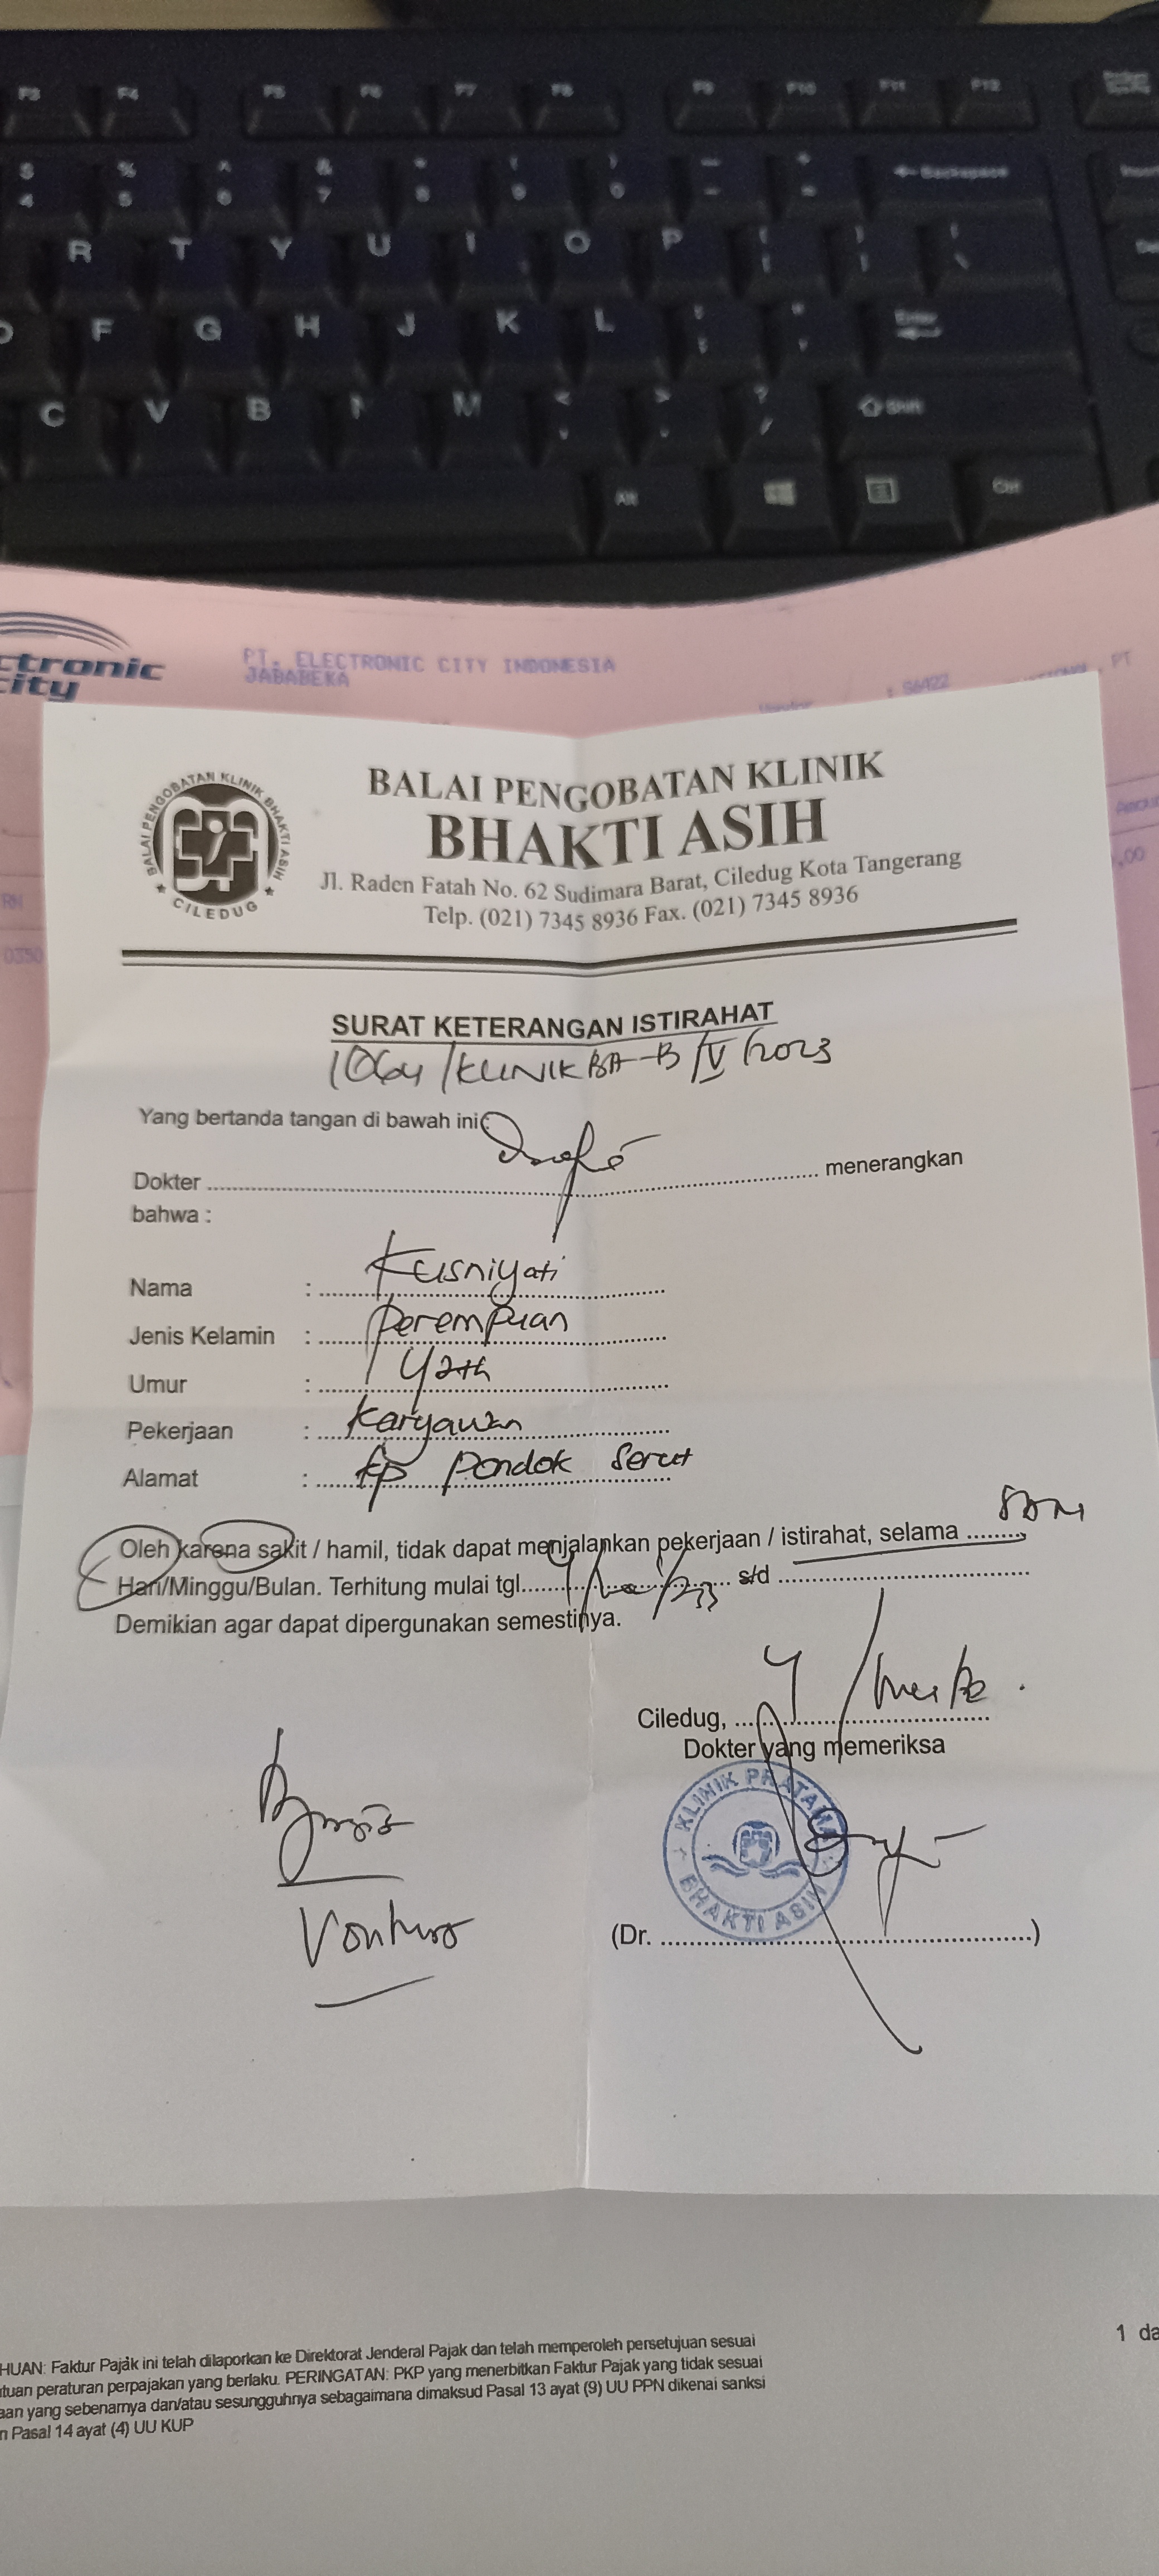 F3 F4 F5 F6 F7 F8 F9 F10 F11 F12
$ % ^ & * ( ) _ +
4 5 6 7 8 9 0 - = Backspace
R T Y U I O P { } \
[ ]
F G H J K L : " Enter
; '
C V B N M < > ? Shift
, . /
Alt Ctrl
ctronic
city
PT. ELECTRONIC CITY INDONESIA
JABABEKA
: S6422
, PT
,00
RN
0350
BALAI PENGOBATAN KLINIK BHAKTI ASIH
CILEDUG
BALAI PENGOBATAN KLINIK
BHAKTI ASIH
Jl. Raden Fatah No. 62 Sudimara Barat, Ciledug Kota Tangerang
Telp. (021) 7345 8936 Fax. (021) 7345 8936
SURAT KETERANGAN ISTIRAHAT
1064/KLINIK BA-B/V/2023
Yang bertanda tangan di bawah ini
Dokter menerangkan
bahwa :
Nama : Kusniyati
Jenis Kelamin : Perempuan
Umur : 42th
Pekerjaan : Karyawan
Alamat : kp Pondok Serut
Oleh karena sakit / hamil, tidak dapat menjalankan pekerjaan / istirahat, selama
Hari/Minggu/Bulan. Terhitung mulai tgl. s/d
Demikian agar dapat dipergunakan semestinya.
Ciledug, 4/
Dokter yang memeriksa
KLINIK PRATAMA
BHAKTI ASIH
(Dr. )
1 da
HUAN: Faktur Pajak ini telah dilaporkan ke Direktorat Jenderal Pajak dan telah memperoleh persetujuan sesuai
tuan peraturan perpajakan yang berlaku. PERINGATAN: PKP yang menerbitkan Faktur Pajak yang tidak sesuai
aan yang sebenarnya dan/atau sesungguhnya sebagaimana dimaksud Pasal 13 ayat (9) UU PPN dikenai sanksi
n Pasal 14 ayat (4) UU KUP